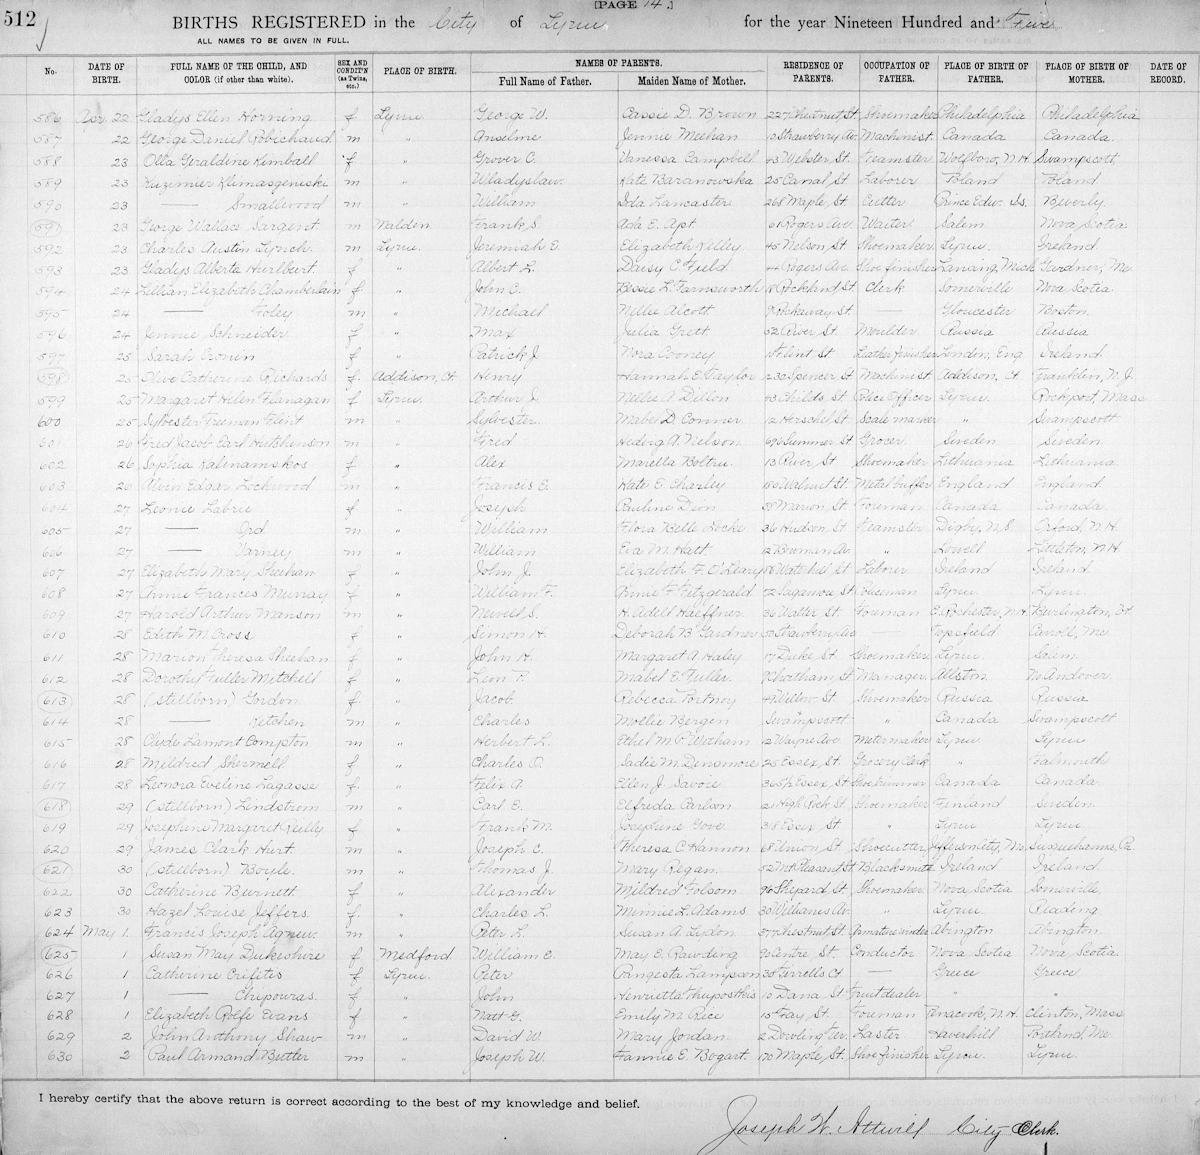 512
[PAGE 14.]
BIRTHS REGISTERED in the City of Lynn for the year Nineteen Hundred and Five
ALL NAMES TO BE GIVEN IN FULL.
No. DATE OF BIRTH. FULL NAME OF THE CHILD, AND COLOR (if other than white). SEX AND CONDIT'N (as Twins, etc.) PLACE OF BIRTH. NAMES OF PARENTS. Full Name of Father. Maiden Name of Mother. RESIDENCE OF PARENTS. OCCUPATION OF FATHER. PLACE OF BIRTH OF FATHER. PLACE OF BIRTH OF MOTHER. DATE OF RECORD.
586 Apr 22 Gladys Ellen Horning f Lynn George W. Cassie D. Brown 227 Chestnut St Shoemaker Philadelphia Philadelphia
587 22 George Daniel Robichaud m " Anselme Jennie Meehan 10 Strawberry Av Machinist Canada Canada
588 23 Olla Geraldine Kimball f " Grover C. Vanessa Campbell 43 Webster St. Teamster Wolfboro, N.H. Swampscott
589 23 Kazimier Klimasgeniski m " Wladyslaw Kate Baranowska 25 Canal St. Laborer Poland Poland
590 23 —— Smallwood m " William Ida Lancaster 268 Maple St. Cutter Prince Edw. Is. Beverly
591 23 George Wallace Sargent m Malden Frank S. Ada E. Apt 61 Rogers Av. Waiter Salem Nova Scotia
592 23 Charles Austin Lynch m Lynn Jeremiah E. Elizabeth Kelley 45 Nelson St Shoemaker Lynn Ireland
593 23 Gladys Alberta Hurlbert f " Albert L. Daisy C. Field 44 Rogers Av. Shoe finisher Lansing, Mich Gardner, Me
594 24 Lillian Elizabeth Chamberlain f " John C. Bessie L. Farnsworth 18 Rockland St Clerk Somerville Nova Scotia
595 24 —— Foley m " Michael Nellie Alcott Rockaway St —— Gloucester Boston
596 24 Jennie Schneider f " Max Julia Grett 52 River St. Moulder Russia Russia
597 25 Sarah Cronin f " Patrick J. Nora Cooney Flint St Leather finisher London, Eng Ireland
598 25 Olive Catherine Richards f Addison, Ct Henry Hannah E. Taylor 230 Spencer St Machinist Addison, Ct Franklin, N.J.
599 25 Margaret Helen Flanagan f Lynn Arthur J. Nellie A. Dillon 43 Childs St Police Officer Lynn Rockport, Mass
600 25 Sylvester Freeman Flint m " Sylvester Mabel D. Conner 12 Herschel St Scale maker " Swampscott
601 26 Fred Jacob Carl Hutchinson m " Fred Hedvig A. Nelson 696 Summer St Grocer Sweden Sweden
602 26 Sophia Kalinamskos f " Alex Marella Boltru 13 River St Shoemaker Lithuania Lithuania
603 26 Alvin Edgar Lockwood m " Francis E. Kate E. Charley 180 Walnut St Metal buffer England England
604 27 Leonie Labrie f " Joseph Pauline Dion 58 Marion St. Foreman Canada Canada
605 27 —— Ord m " William Flora Belle Locke 36 Hudson St Teamster Digby, N.S. Orford, N.H.
606 27 —— Varney m " William Eva M. Hatt 12 Bowman Av. " Lowell Littleton, N.H.
607 27 Elizabeth Mary Sheehan f " John J. Elizabeth F. O'Leary 58 Waterhill St Laborer Ireland Ireland
608 27 Annie Frances Murray f " William F. Annie F. Fitzgerald 72 Sagamore St Policeman Lynn Lynn
609 27 Harold Arthur Manson m " Newell S. H. Adell Haeffner 36 Walter St. Foreman E. Rochester, N.H. Burlington, Vt
610 28 Edith M. Cross f " Simon H. Deborah B. Gardner Strawberry Av —— Topsfield Carroll, Me
611 28 Marion Theresa Sheehan f " John H. Margaret A. Haley 17 Duke St. Shoemaker Lynn Salem
612 28 Dorothy Fuller Mitchell f " Leon P. Mabel E. Fuller Cheetham St Manager Allston No Andover
613 28 (stillborn) Gordon f " Jacob Rebecca Portnoy Willow St. Shoemaker Russia Russia
614 28 —— Ketchen m " Charles Mollie Bergen Swampscott " Canada Swampscott
615 28 Clyde Lamont Compton m " Herbert L. Ethel M. P. Wetham 12 Wayne Ave Motormaker Lynn Lynn
616 28 Mildred Shermell f " Charles O. Sadie M. Densmore 25 Essex St. Grocery Clerk " Falmouth
617 28 Leonora Eveline Lagasse f " Felix A. Ellen J. Savoie 365½ Essex St Shoetrimmer Canada Canada
618 29 (stillborn) Lindstrum m " Carl E. Elfreda Carlson 21 High Rock St. Shoemaker Finland Sweden
619 29 Josephine Margaret Reilly f " Frank M. Josephine Gove 318 Essex St " Lynn Lynn
620 29 James Clark Hurt m " Joseph C. Theresa C. Hannon 68 Union St. Shoecutter Jefferson City, Mo Susquehanna, Pa
621 30 (stillborn) Boyle m " Thomas J. Mary Regan 52 Mt Pleasant St Blacksmith Ireland Ireland
622 30 Catherine Burnett f " Alexander Mildred Folsom 96 Shepard St. Shoemaker Nova Scotia Somerville
623 30 Hazel Louise Jeffers f " Charles L. Minnie L. Adams 30 Williams Av. " Lynn Reading
624 May 1 Francis Joseph Agnew m " Peter L. Susan A. Lydon 377 Chestnut St. Armature winder Abington Abington
625 1 Susan May Dukeshire f Medford William E. May E. Rawding Centre St. Conductor Nova Scotia Nova Scotia
626 1 Catherine Crifitis f Lynn Peter Pangesta Lampson 30 Ferrells Ct —— Greece Greece
627 1 —— Chipouras f " John Henrietta Thupostkis 10 Dana St Fruit dealer " "
628 1 Elizabeth Rolfe Evans f " Natt G. Emily M. Rice 15 Fay St. Foreman Penacook, N.H. Clinton, Mass
629 2 John Anthony Shaw m " David W. Mary Jordan 2 Dowling Av. Laster Haverhill Portland, Me
630 2 Paul Armand Butler m " Joseph W. Fannie E. Bogart 170 Maple St. Shoe finisher Lynn Lynn
I hereby certify that the above return is correct according to the best of my knowledge and belief.
Joseph W. Attwill City Clerk.